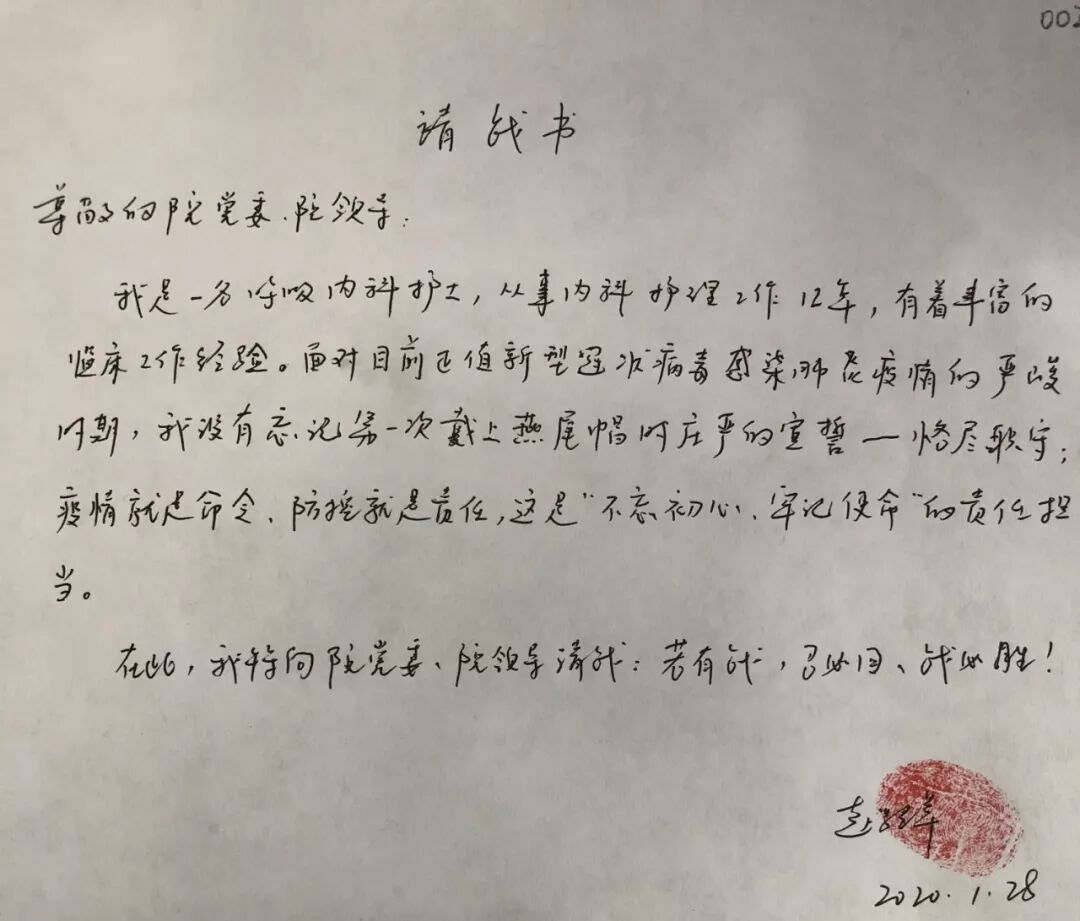 002
请战书
尊敬的院党委、院领导:
我是一名呼吸内科护士,从事内科护理工作12年,有着丰富的
临床工作经验。面对目前正值新型冠状病毒感染肺炎疫情的严峻
时期,我没有忘记第一次戴上燕尾帽时庄严的宣誓—恪尽职守;
疫情就是命令、防控就是责任,这是“不忘初心、牢记使命”的责任担
当。
在此,我特向院党委、院领导请战:若有战,召必回、战必胜!
赵
2020.1.28